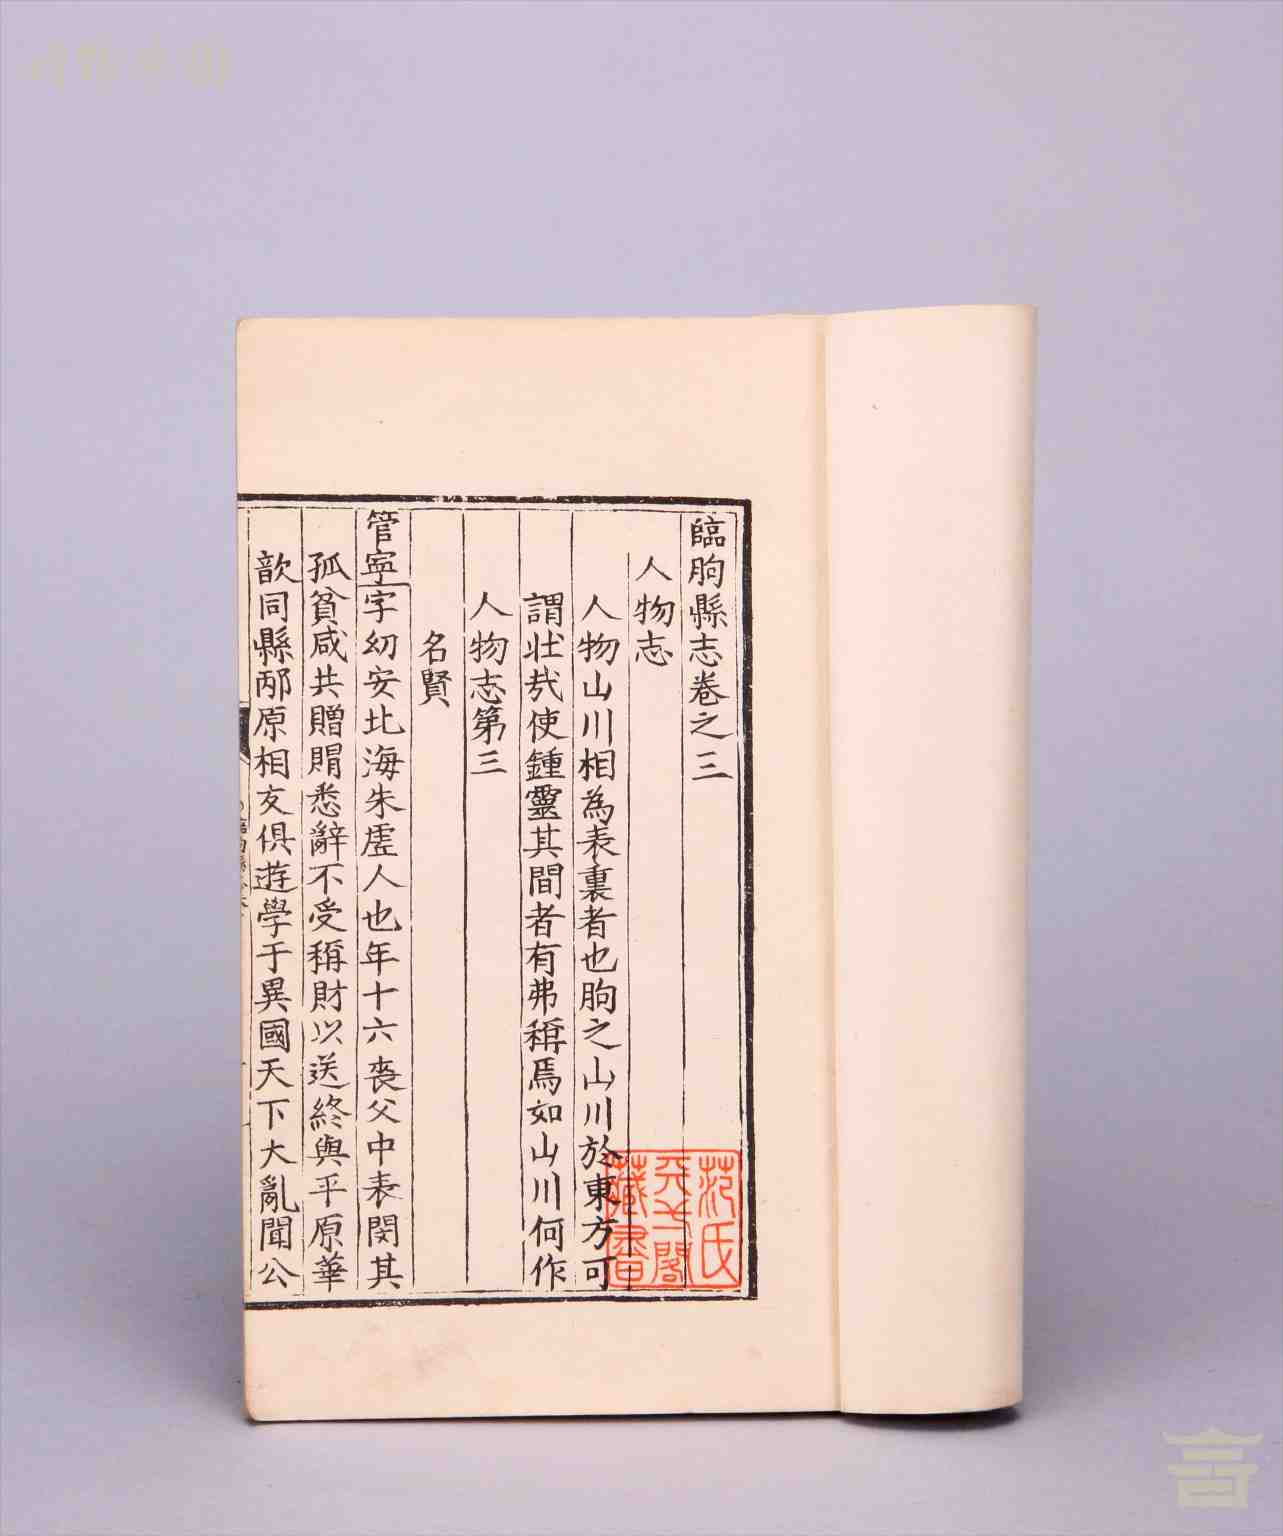 臨朐縣志卷之三
人物志
人物山川相為表裏者也朐之山川於東方可
謂壯哉使鍾靈其間者有弗稱焉如山川何作
人物志第三
名賢
管寧字幼安北海朱虛人也年十六喪父中表閔其
孤貧咸共贈賵悉辭不受稱財以送終與平原華
歆同縣邴原相友俱遊學于異國天下大亂聞公
范氏
天一閣
藏書